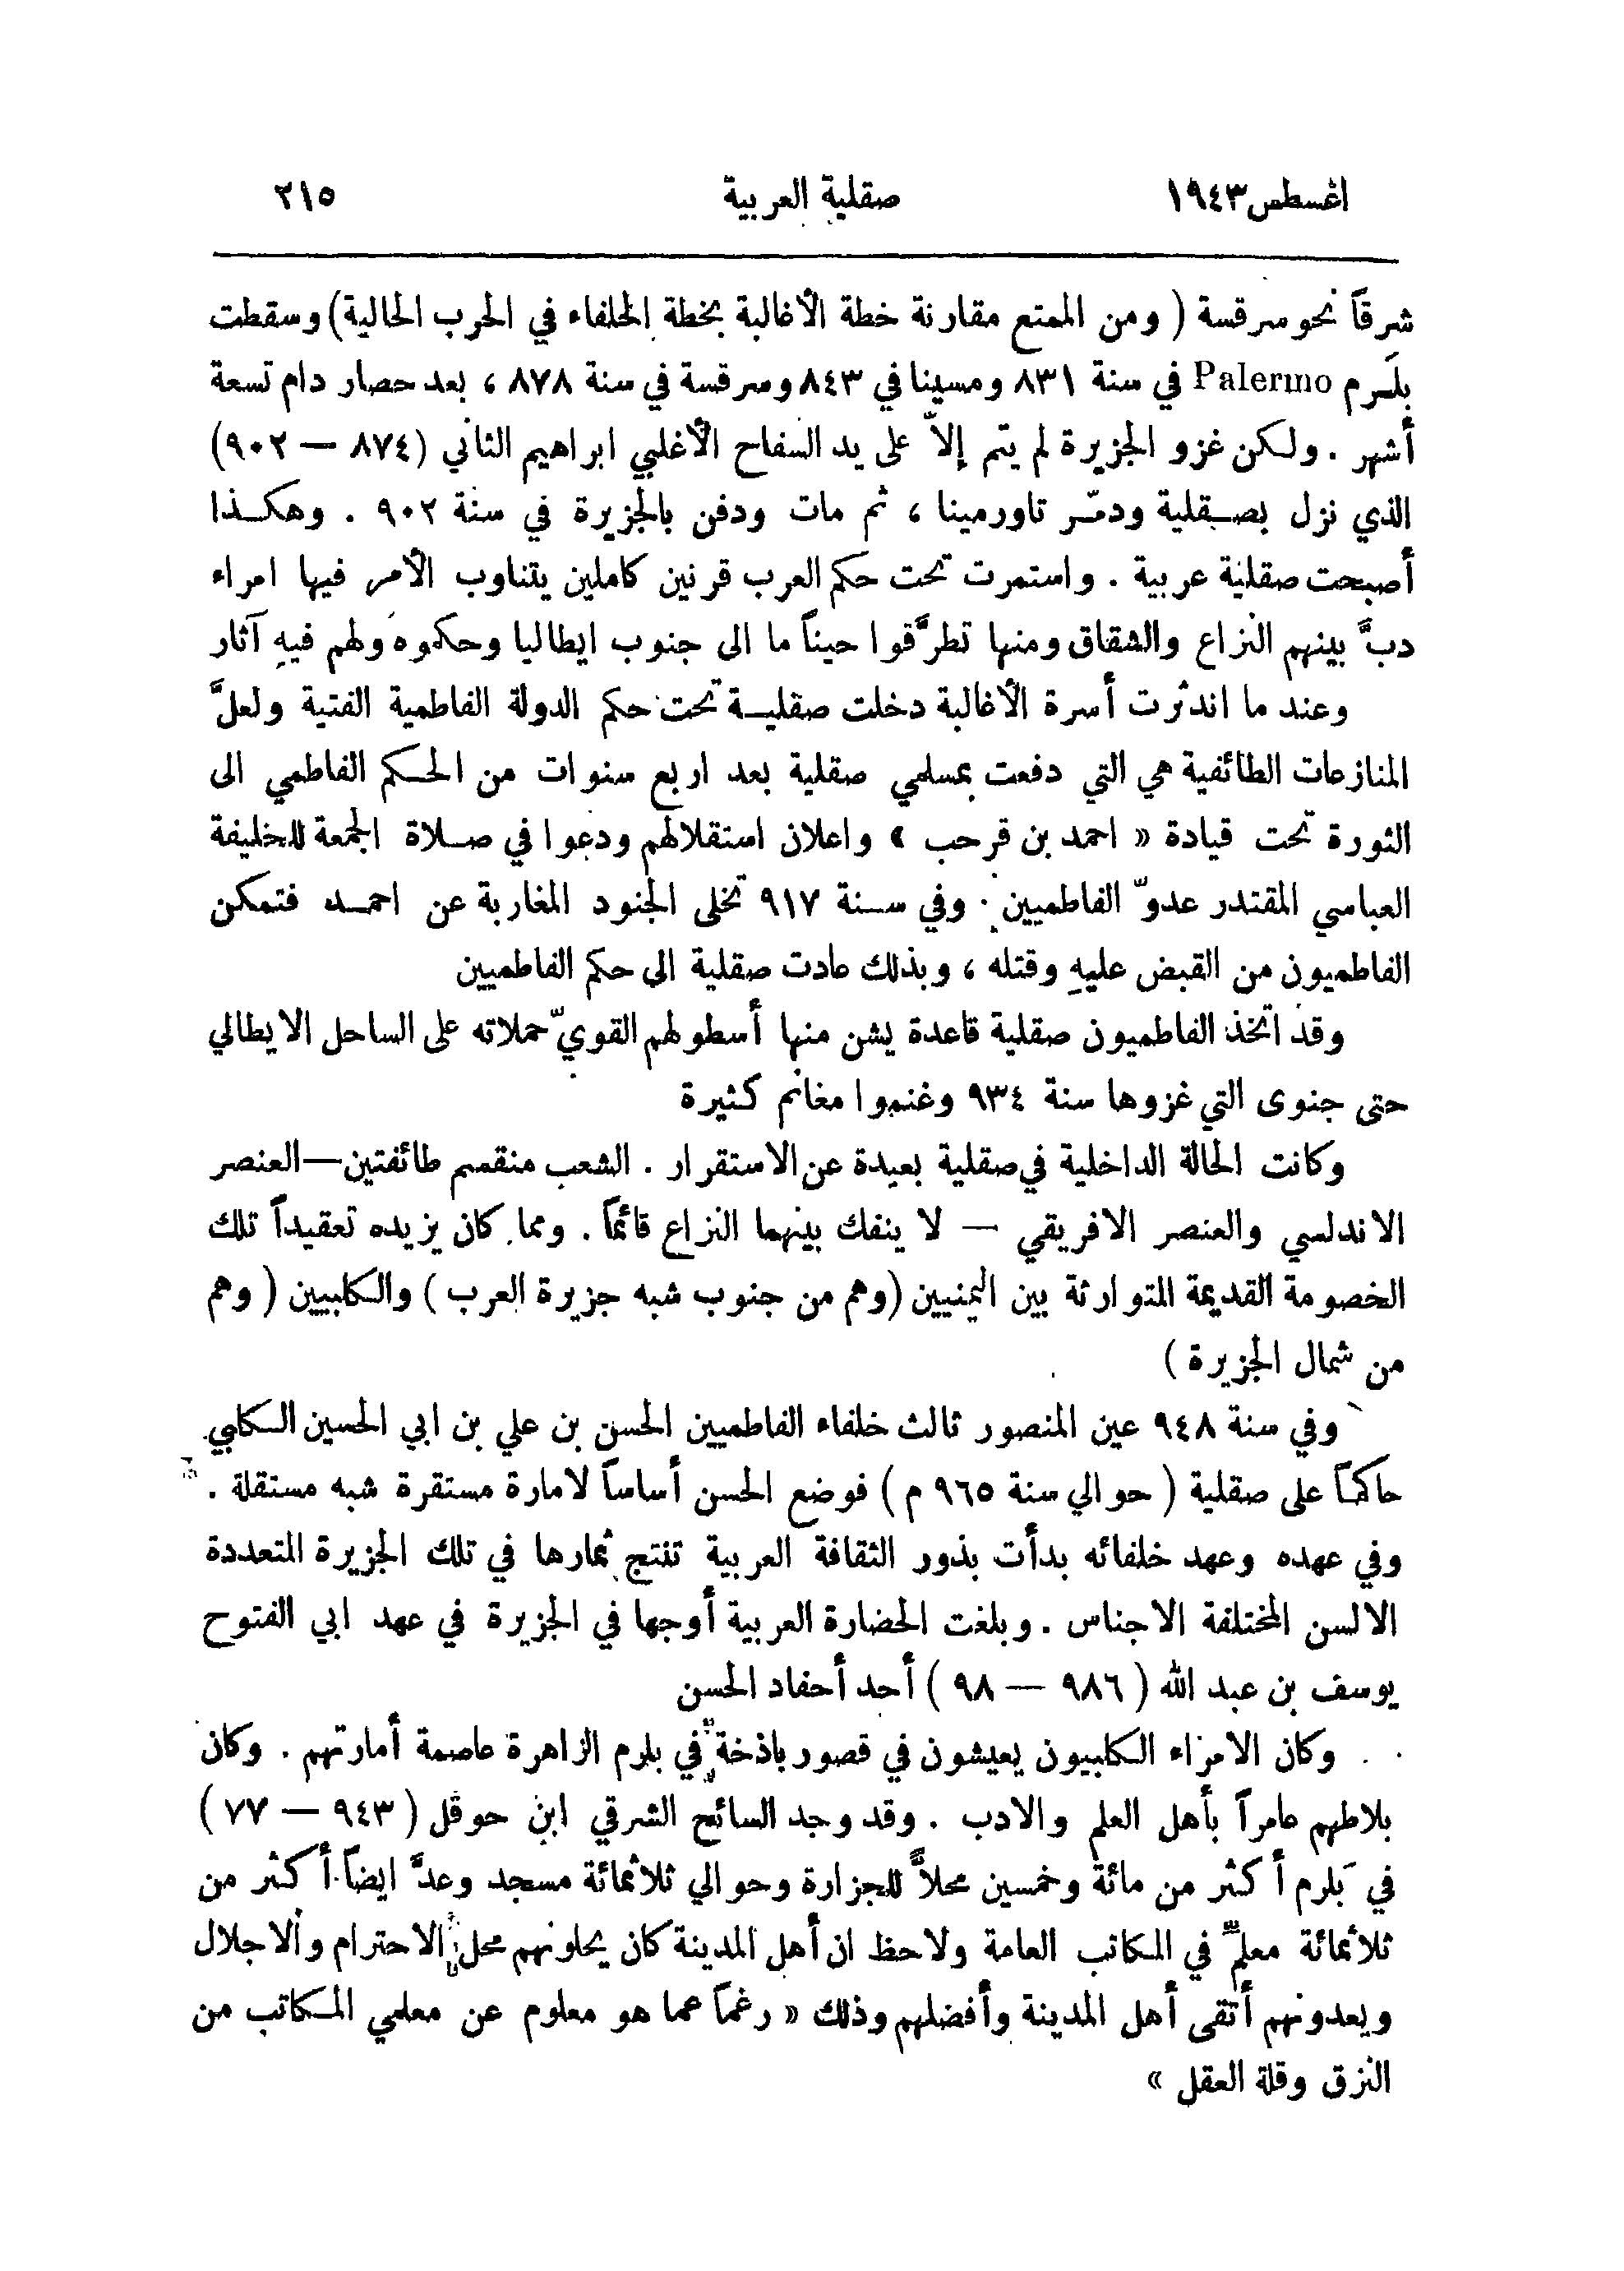 اغسطس ١٩٤٣
صقلية العربية
٢١٥
شرقاً نحو سرقسة ( ومن الممتع مقارنة خطة الأغالبة بخطة الحلفاء في الحرب الحالية) وسقطت
بلَرم Palermo في سنة ٨٣١ ومسينا في ٨٤٣ وسرقسة في سنة ٨٧٨ ، بعد حصار دام تسعة
أشهر . ولكن غزو الجزيرة لم يتم إلاّ على يد السفاح الأغلبي ابراهيم الثاني (٨٧٤ — ٩٠٢)
الذي نزل بصقلية ودمّر تاورمينا ، ثم مات ودفن بالجزيرة في سنة ٩٠٢ . وهكذا
أصبحت صقلية عربية . واستمرت تحت حكم العرب قرنين كاملين يتناوب الأمر فيها امراء
دبَّ بينهم النزاع والشقاق ومنها تطرَّقوا حيناً ما الى جنوب ايطاليا وحكموه ولهم فيهِ آثار
وعند ما اندثرت أسرة الأغالبة دخلت صقلية تحت حكم الدولة الفاطمية الفتية ولعلَّ
المنازعات الطائفية هي التي دفعت بمسلمي صقلية بعد اربع سنوات من الحكم الفاطمي الى
الثورة تحت قيادة « احمد بن قرحب » واعلان استقلالهم ودعوا في صلاة الجمعة للخليفة
العباسي المقتدر عدوّ الفاطميين . وفي سنة ٩١٧ تخلى الجنود المغاربة عن احمد فتمكن
الفاطميون من القبض عليهِ وقتله ، وبذلك عادت صقلية الى حكم الفاطميين
وقد اتخذ الفاطميون صقلية قاعدة يشن منها أسطولهم القويّ حملاته على الساحل الايطالي
حتى جنوى التي غزوها سنة ٩٣٤ وغنموا مغانم كثيرة
وكانت الحالة الداخلية في صقلية بعيدة عن الاستقرار . الشعب منقسم طائفتين — العنصر
الاندلسي والعنصر الافريقي — لا ينفك بينهما النزاع قائماً . ومما كان يزيده تعقيداً تلك
الخصومة القديمة المتوارثة بين اليمنيين (وهم من جنوب شبه جزيرة العرب ) والكلبيين ( وهم
من شمال الجزيرة )
وفي سنة ٩٤٨ عين المنصور ثالث خلفاء الفاطميين الحسن بن علي بن ابي الحسين الكلبي
حاكماً على صقلية ( حوالي سنة ٩٦٥ م ) فوضع الحسن أساساً لامارة مستقرة شبه مستقلة .
وفي عهده وعهد خلفائه بدأت بذور الثقافة العربية تنتج ثمارها في تلك الجزيرة المتعددة
الالسن المختلفة الاجناس . وبلغت الحضارة العربية أوجها في الجزيرة في عهد ابي الفتوح
يوسف بن عبد الله ( ٩٨٦ — ٩٨ ) أحد أحفاد الحسن
وكان الامراء الكلبيون يعيشون في قصور باذخة في بلرم الزاهرة عاصمة أمارتهم . وكان
بلاطهم عامراً بأهل العلم والادب . وقد وجد السائح الشرقي ابن حوقل ( ٩٤٣ — ٧٧ )
في بَلرم أكثر من مائة وخمسين محلاًّ للجزارة وحوالي ثلاثمائة مسجد وعدَّ ايضاً أكثر من
ثلاثمائة معلمٍّ في المكاتب العامة ولاحظ ان أهل المدينة كان يحلونهم محل الاحترام والاجلال
ويعدونهم أتقى أهل المدينة وأفضلهم وذلك « رغماً عما هو معلوم عن معلمي المكاتب من
النزق وقلة العقل »